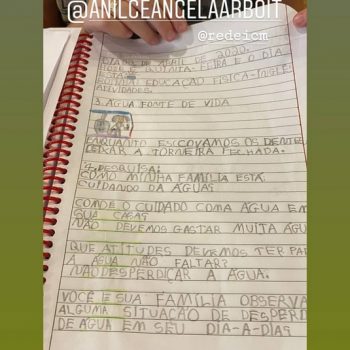 @ANILCEANGELAARBOIT
@redeicm
DE ABRIL DE 2020.
HOJE É QUINTA-FEIRA E O DIA
ROTINA: EDUCAÇÃO FÍSICA-INGLÊS
ATIVIDADES.
3. ÁGUA FONTE DE VIDA
ENQUANTO ESCCOVAMOS OS DENTES
A TORNEIRA FECHADA.
PESQUISA:
COMO MINHA FAMÍLIA ESTÁ
CUIDANDO DA ÁGUA?
COMO É O CUIDADO COM A ÁGUA EM
SUA CASA?
NÃO DEVEMOS GASTAR MUITA ÁGU
QUE ATITUDES DEVEMOS TER PAR
A ÁGUA NÃO FALTAR?
NÃO DESPERDIÇAR A ÁGUA.
VOCÊ E SUA FAMÍLIA OBSERVA
ALGUMA SITUAÇÃO DE DESPERD
DE ÁGUA EM SEU DIA-A-DIA?